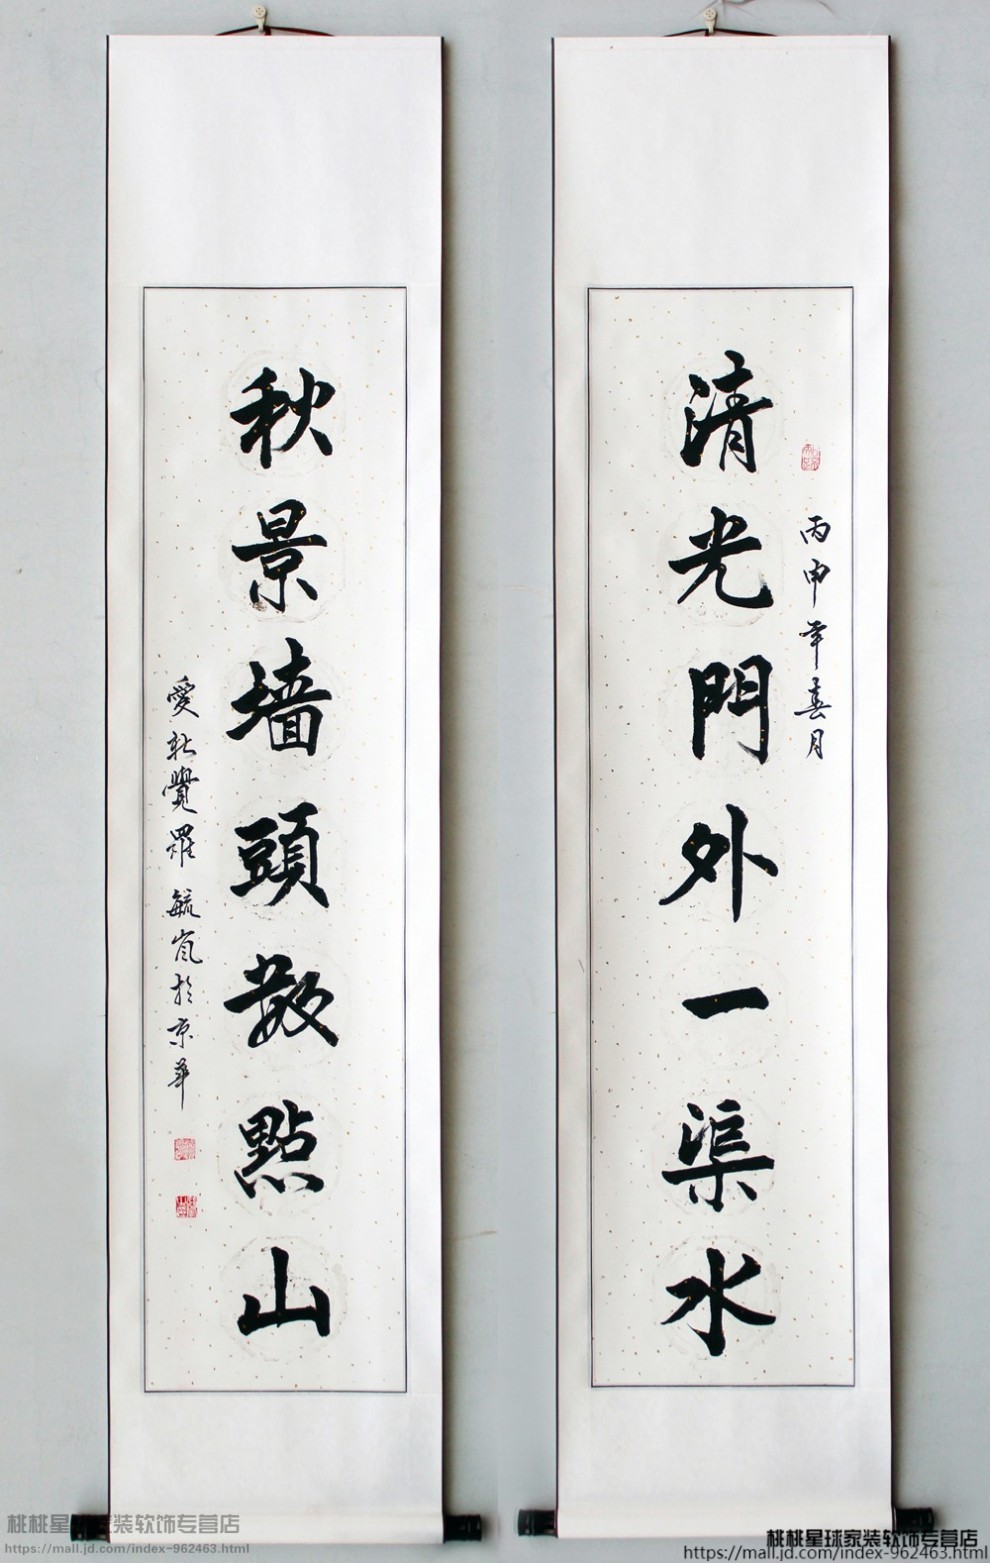 清光門外一渠水
丙申年春月
秋景墙頭数點山
愛新覺羅毓嵐於京華
桃桃星球家装软饰专营店
https://mall.jd.com/index-962463.html
桃桃星球家装软饰专营店
https://mall.jd.com/index-962463.html